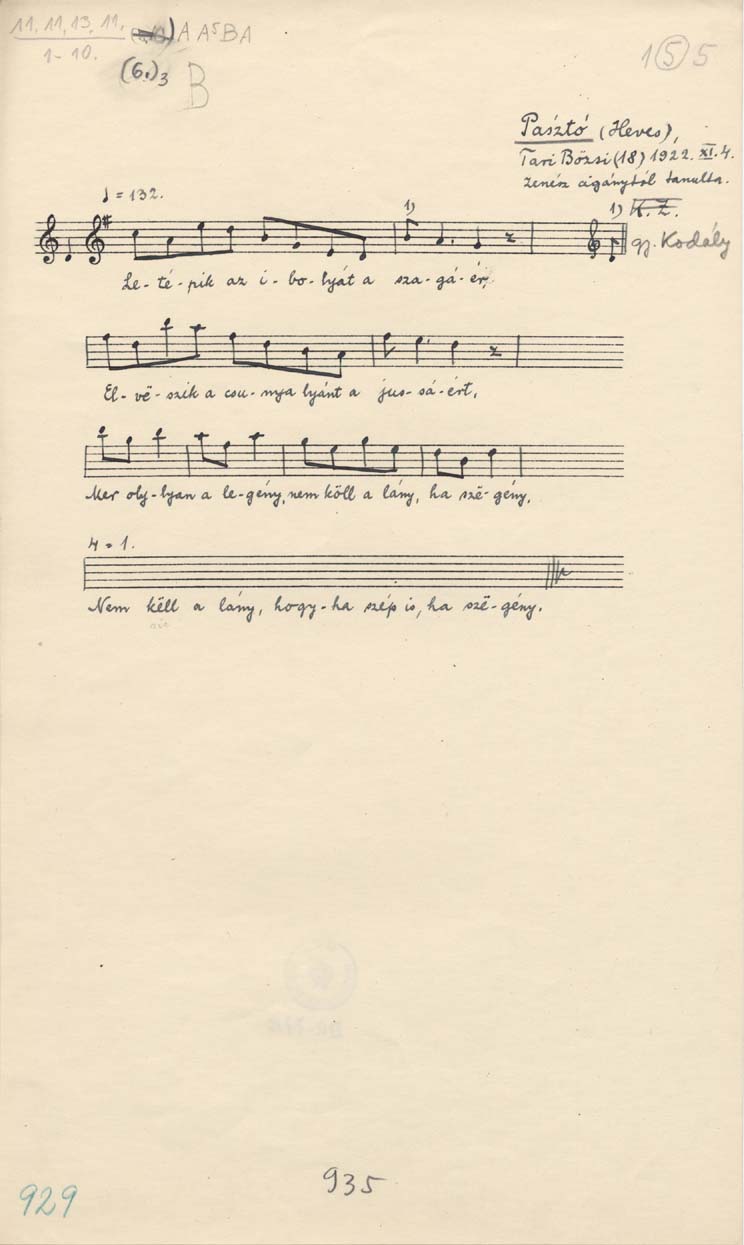 11, 11, 13, 11, A A⁵ B A
1 5 5
1- 10.
(6.)3
B
Pásztó (Heves),
Tari Bözsi (18) 1922. XI. 4.
zenész cigánytól tanulta.
♩ = 132.
1)
1) K. Z.
gy. Kodály
Le- té- pik az i- bo- lyát a sza- gá- ér,
El- vë- szik a csu- nya lyánt a jus- sá- ért,
Mer oly- lyan a le- gény, nem köll a lány, ha szë- gény,
4 = 1.
Nem këll a lány, hogy- ha szép is, ha szë- gény.
929
935